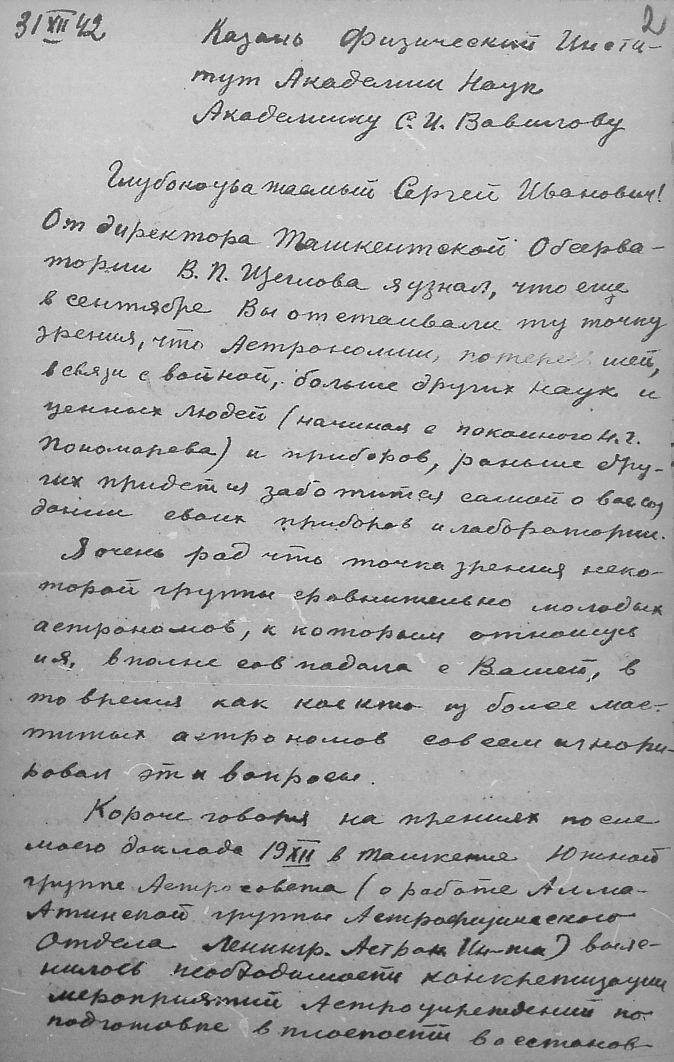 31 XII 42
2
Казань Физический Инсти-
тут Академии Наук
Академику С. И. Вавилову
Глубокоуважаемый Сергей Иванович!
От директора Ташкентской Обсерва-
тории В. П. Щеглова я узнал, что еще
в сентябре Вы отстаивали ту точку
зрения, что Астрономии, потерявшей,
в связи с войной, больше других наук и
ценных людей (начиная с покойного Н. Г.
Пономарева) и приборов, раньше дру-
гих придется заботится самой о воссоз
дании своих приборов и лаборатории.
Я очень рад что точка зрения неко-
торой группы сравнительно молодых
астрономов, к которым отношусь
и я, вполне совпадала с Вашей, в
то время как кое кто из более мас-
титых астрономов совсем игнори-
ровал эти вопросы.
Короче говоря на прениях после
моего доклада 19 XII в Ташкенте Южной
группе Астросовета (о работе Алма-
Атинской группы Астрофизического
Отдела Ленингр. Астрон Ин-та) выяс-
нилось необходимости конкретизации
мероприятий Астроучреждений по
подготовке в плоскости восстанов-